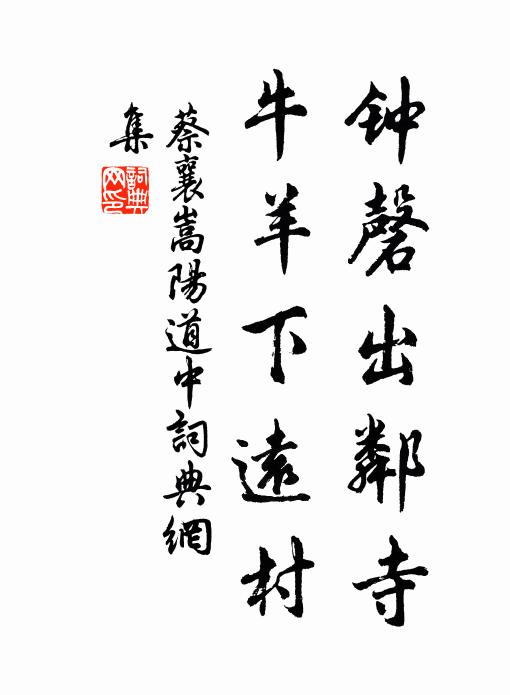 钟磬出鄰寺
牛羊下遠村
蔡襄嵩陽道中詞典網
集
詞典網印